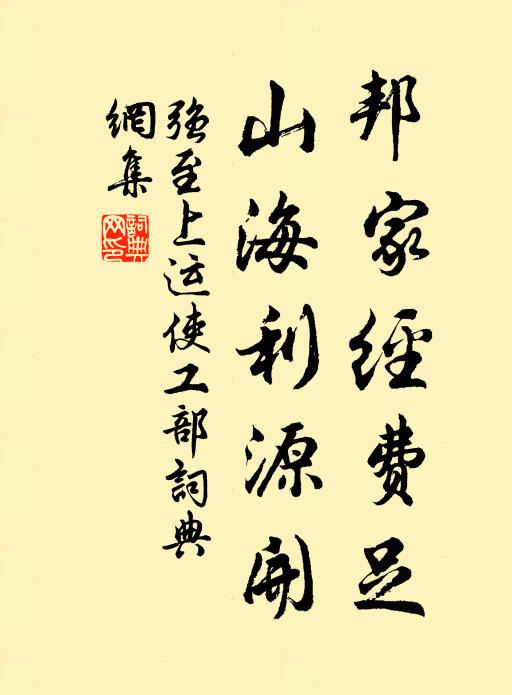 邦家經費足
山海利源開
強至上运使工部詞典
網集
詞典
网印